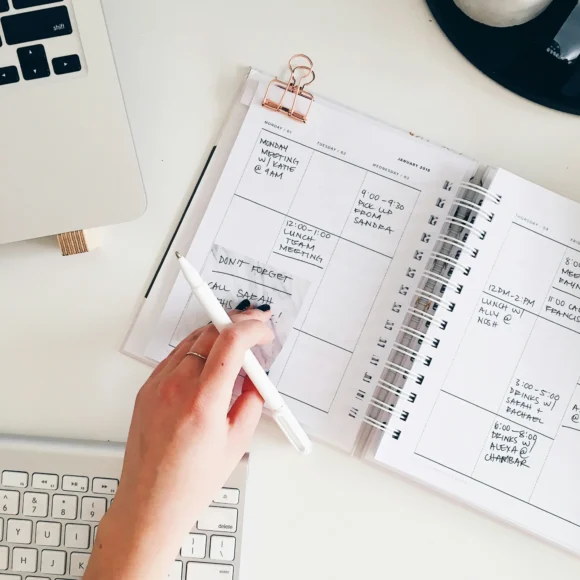 shift
MONDAY / 01
TUESDAY / 02
WEDNESDAY / 03
JANUARY 2018
MONDAY
MEETING
W/ KATIE
@ 9AM
9:00-9:30
PICK UP
FROM
SANDRA
12:00-1:00
LUNCH
TEAM
MEETING
DON'T FORGET
CALL SARAH
THIS
!
THURSDAY / 04
12PM-2PM
LUNCH W/
ALLY @
NOSH
3:00-5:00
DRINKS W/
SARAH +
RACHAEL
6:00-8:00
DRINKS W/
ALEXA @
CHAMBAR
8:00
MEET
11:00 CA
FRANCIS
6
7
8
9
Y
U
I
H
J
K
N
M
delete